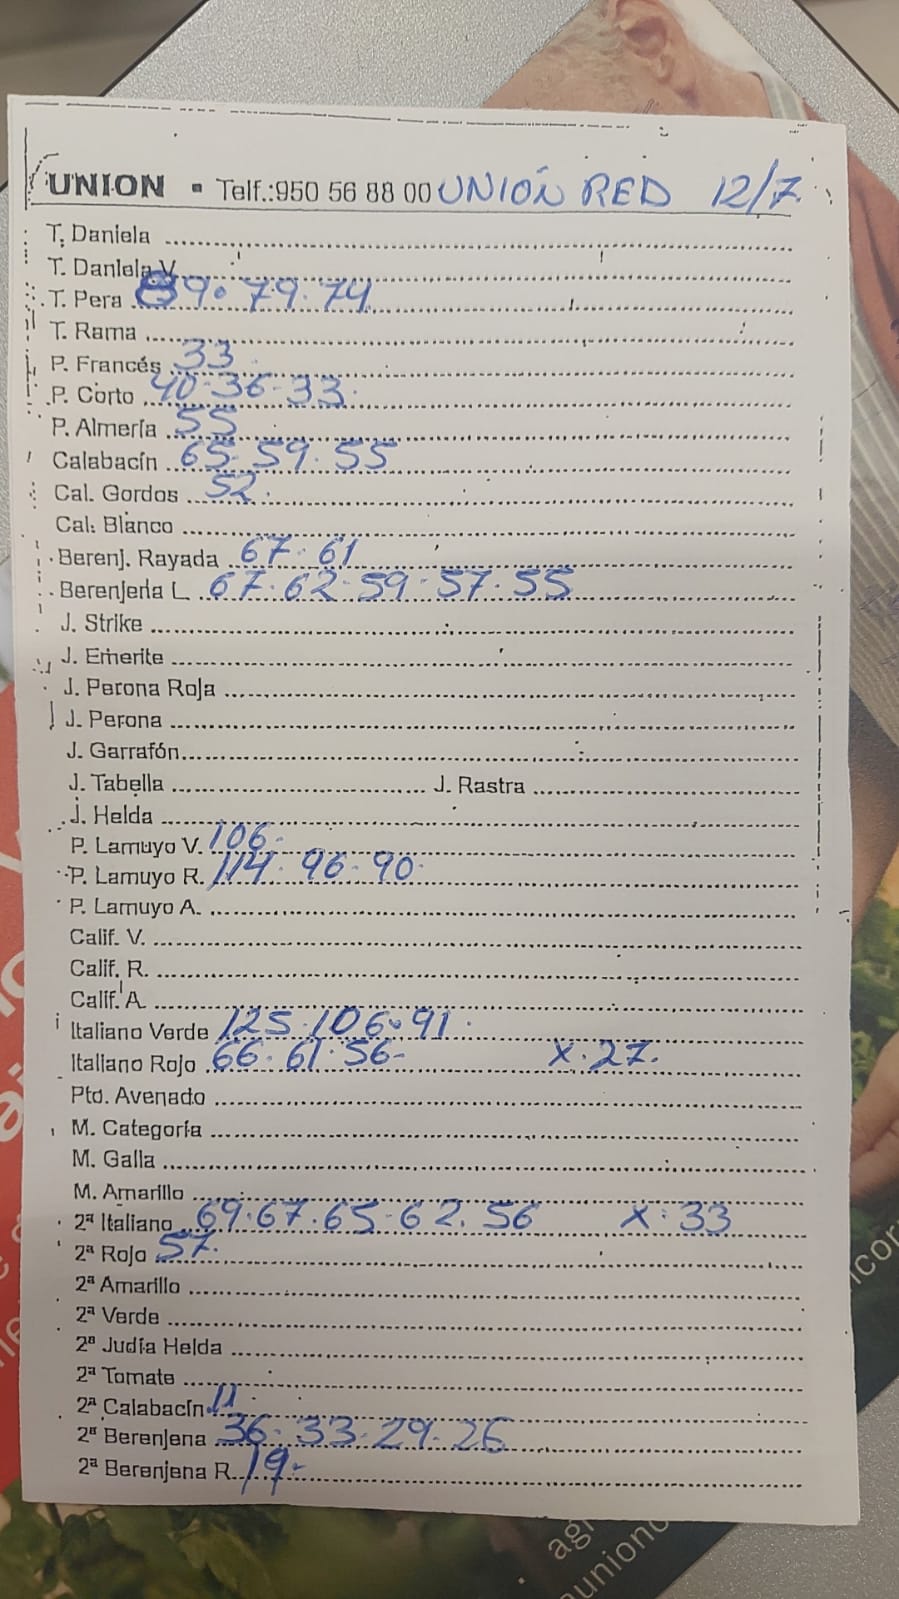 UNION ▪ Telf.:950 56 88 00 UNIÓN RED 12/7
T. Daniela
T. Daniela V.
T. Pera 89·79·74
T. Rama
P. Francés 33·
P. Corto 40·36·33·
P. Almería 55
Calabacín 65·59·55
Cal. Gordos 52·
Cal. Blanco
Berenj. Rayada 67·61
Berenjena L. 67·62·59·57·55
J. Strike
J. Emerite
J. Perona Roja
J. Perona
J. Garrafón
J. Tabella J. Rastra
J. Helda
P. Lamuyo V. 106-
P. Lamuyo R. 114·96·90·
P. Lamuyo A.
Calif. V.
Calif. R.
Calif. A.
Italiano Verde 125·106·91·
Italiano Rojo 66·61·56- X·27·
Pto. Avenado
M. Categoría
M. Galla
M. Amarillo
2ª Italiano 69·67·65·62·56 X·33
2ª Rojo 57·
2ª Amarillo
2ª Verde
2ª Judía Helda
2ª Tomate
2ª Calabacín 11
2ª Berenjena 36·33·29·26
2ª Berenjena R. 19-